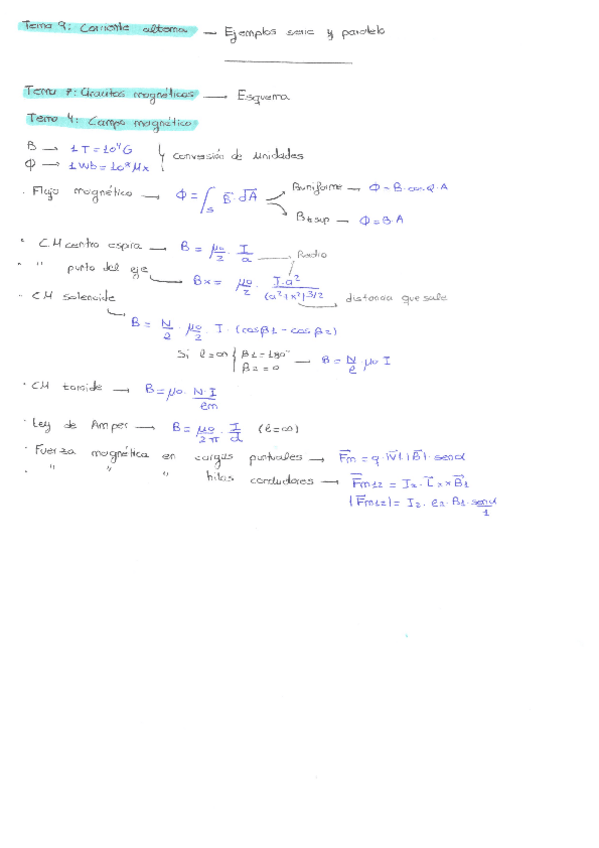 Tema 9: Corriente alterna → Ejemplos serie y paralelo
Tema 7: Circuitos magnéticos → Esquema
Tema 4: Campo magnético
B → 1T = 10⁴G
Φ → 1Wb = 10⁸Mx } conversión de unidades
· Flujo magnético → Φ = ∫s B⃗ · dA⃗ → B uniforme → Φ = B · cos α · A
B ⊥ sup → Φ = B · A
· CM centro espira → B = μ₀/2 · I/a → Radio
· " punto del eje → Bx = μ₀/2 · I · a²/(a²+x²)^3/2 → distancia que sale
· CM solenoide
B = N/l · μ₀/2 · I · (cos β1 - cos β2)
Si l = ∞ { β1 = 180° β2 = 0 → B = N/l · μ₀ I
· CM toroide → B = μ₀ · N · I/lm
· Ley de Amper → B = μ₀/2π · I/d (l = ∞)
· Fuerza magnética en cargas puntuales → F⃗m = q · |V⃗| · |B⃗| · sen α
· " " " hilos conductores → F⃗m12 = I₂ · L⃗₂ x B⃗1
|F⃗m12| = I₂ · l₂ · B1 · sen α
1